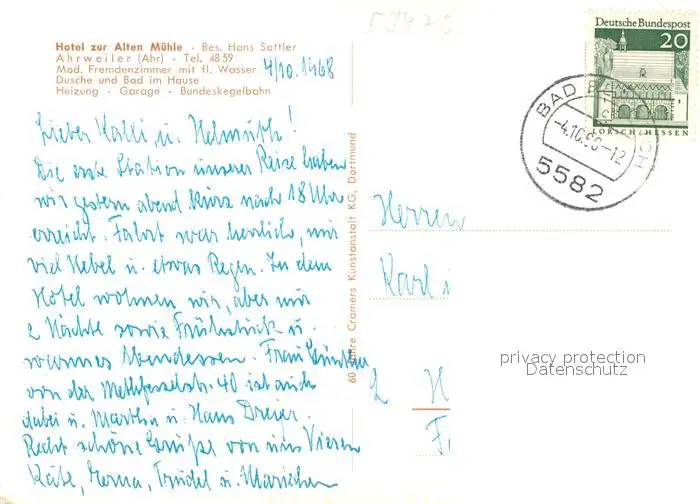 Hotel zur Alten Mühle - Bes. Hans Sattler
Ahrweiler (Ahr) - Tel. 4859
Mod. Fremdenzimmer mit fl. Wasser
Dusche und Bad im Hause
Heizung - Garage - Bundeskegelbahn
4/10.1968
Lieber Kalli u. Helmuth!
Die erste Station unserer Reise haben
wir gestern abend kurz nach 18 Uhr
erreicht. Fahrt war herrlich, nur
viel Nebel u. etwas Regen. In dem
Hotel wohnen wir, aber nur
2 Nächte sowie Frühstück u.
warmes Abendessen. Frau Günther
von der Methfesselstr. 40 ist auch
dabei u. Martha u. Hans Dreyer.
Recht schöne Grüße von uns Vieren
Käte, Erna, Trudel u. Mariechen
60 Jahre Cramers Kunstanstalt KG, Dortmund
Deutsche Bundespost
20
LORSCH/HESSEN
BAD
-4.10.68-12
5582
Herren
Karl
2 H
privacy protection
Datenschutz